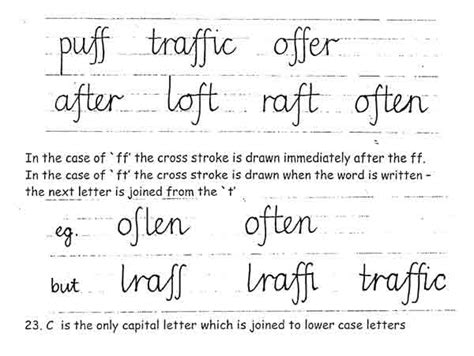 puff traffic offer
after loft raft often
In the case of `ff' the cross stroke is drawn immediately after the ff.
In the case of `ft' the cross stroke is drawn when the word is written –
the next letter is joined from the `t'
eg. oſlen often
but lraſſ lraffi traffic
23. C is the only capital letter which is joined to lower case letters